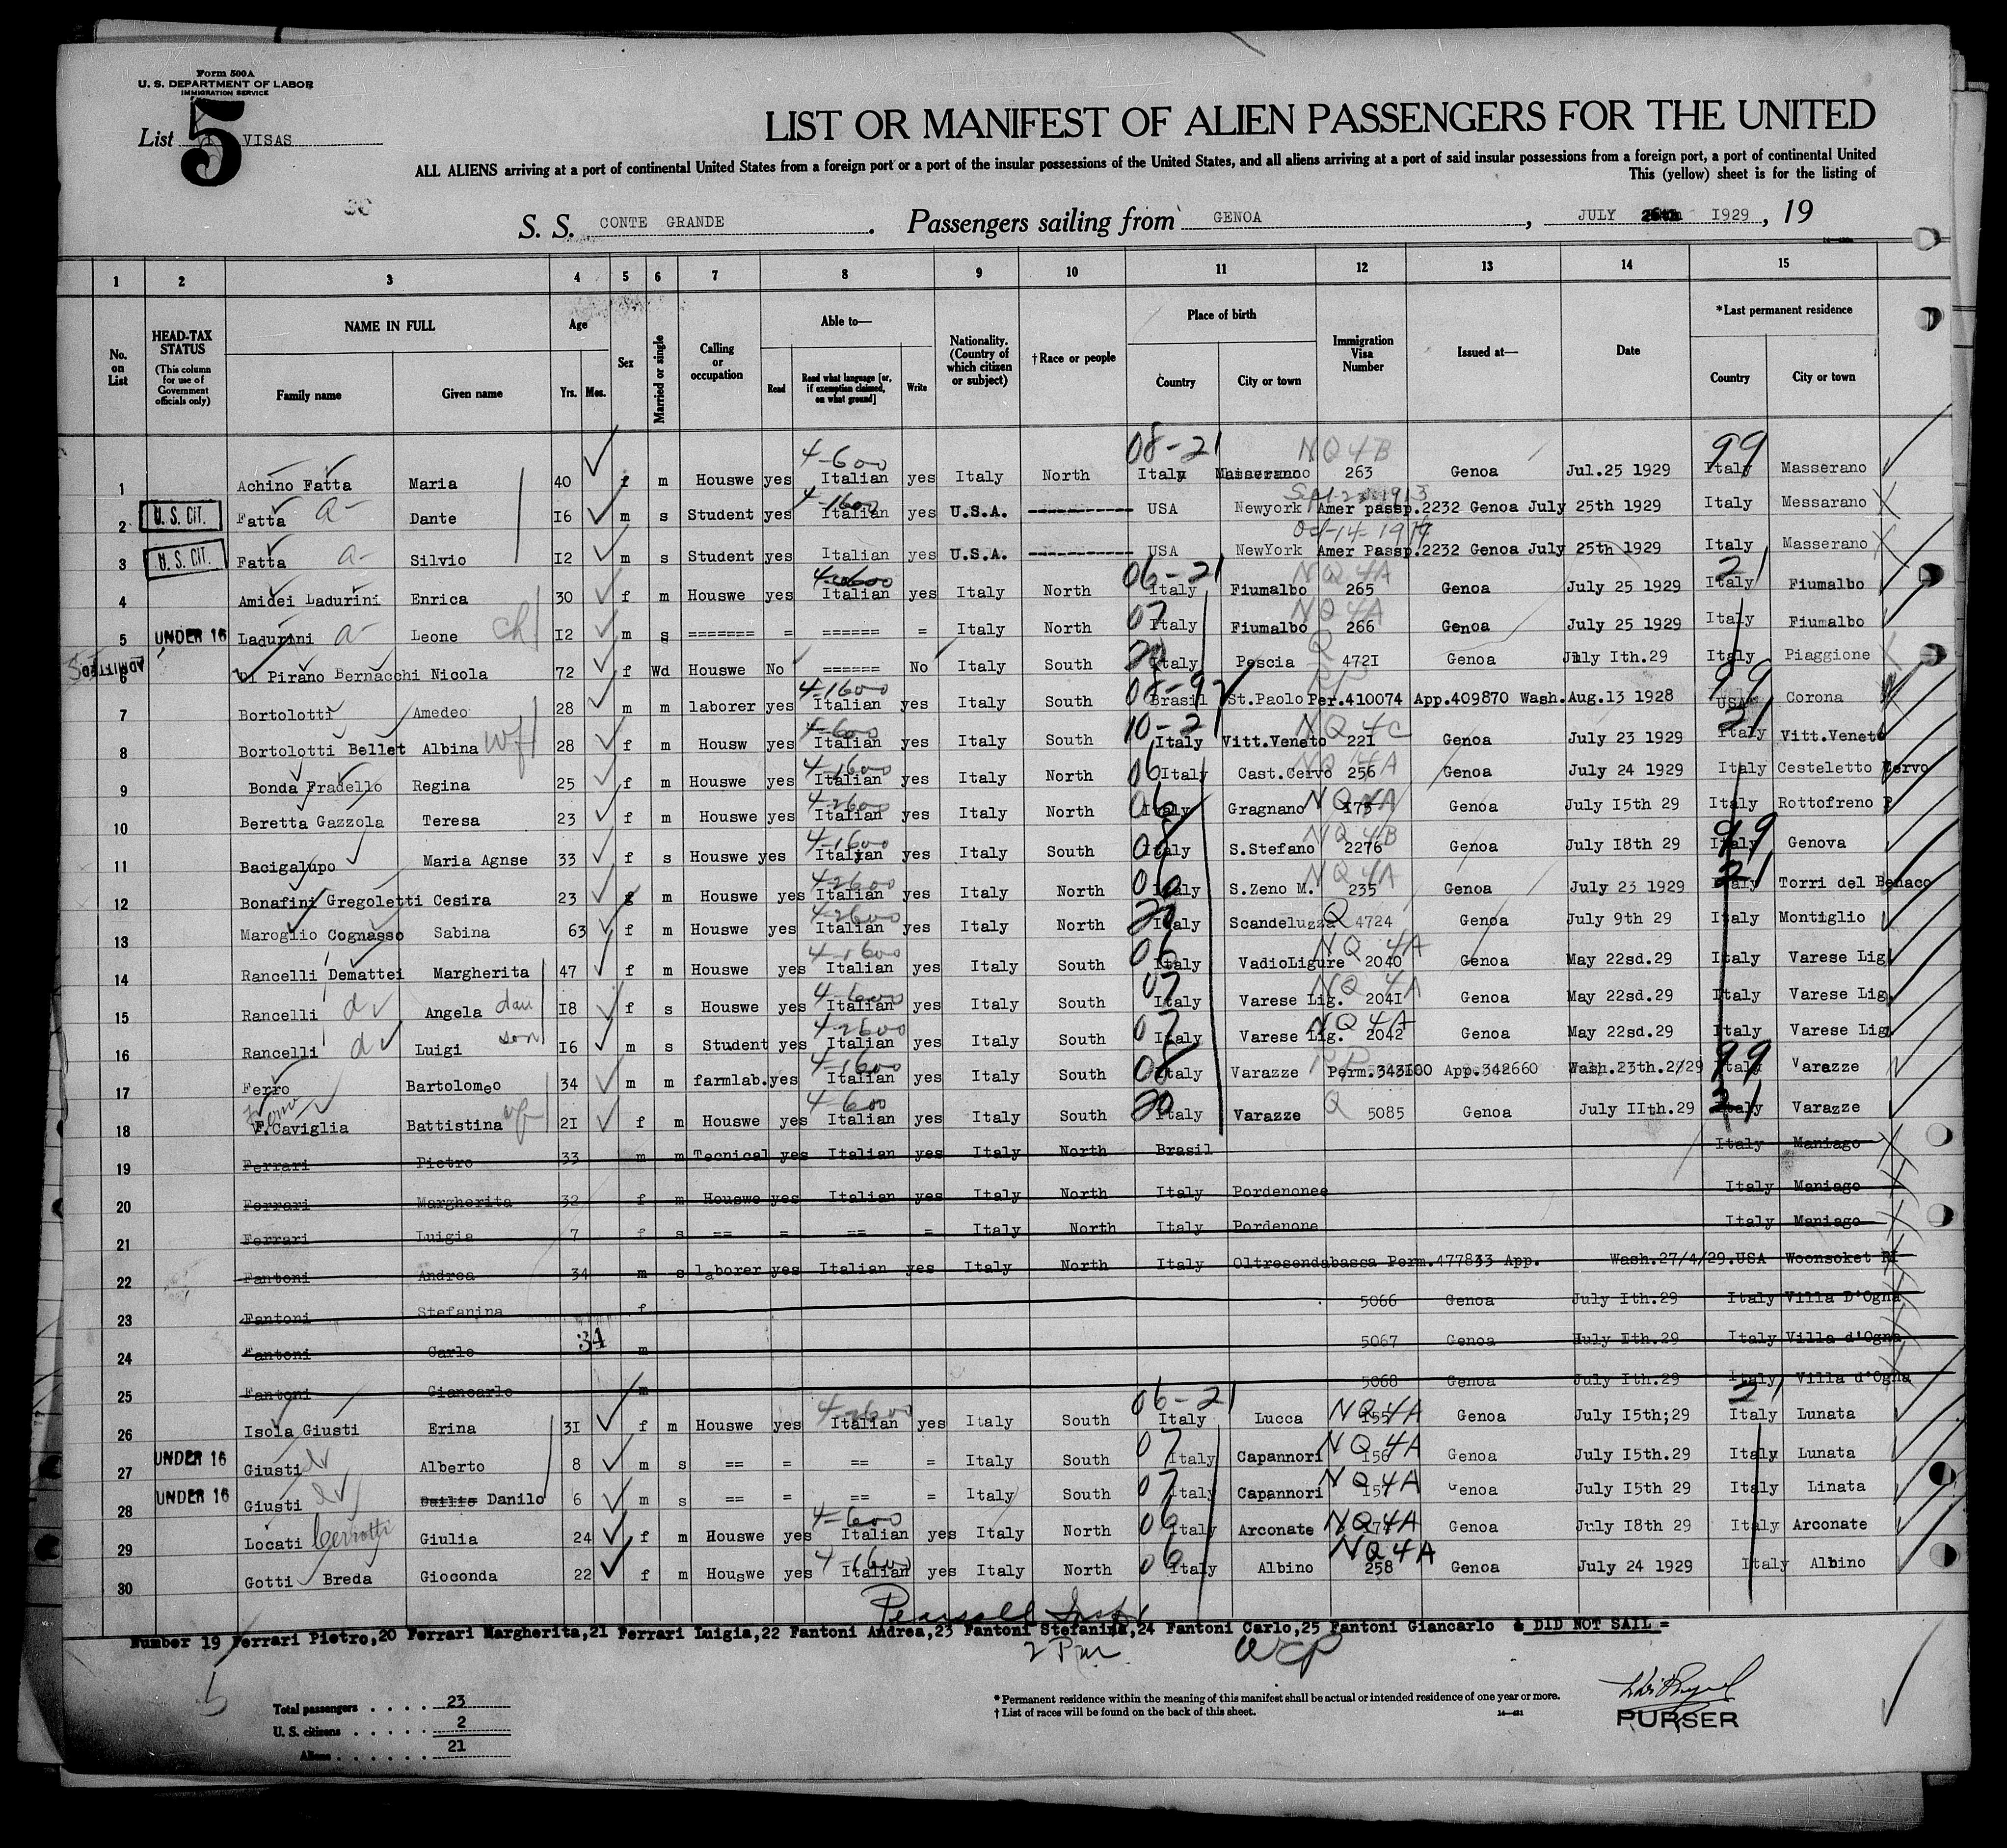 Form 500A
U. S. DEPARTMENT OF LABOR
IMMIGRATION SERVICE
List 5 VISAS
LIST OR MANIFEST OF ALIEN PASSENGERS FOR THE UNITED
ALL ALIENS arriving at a port of continental United States from a foreign port or a port of the insular possessions of the United States, and all aliens arriving at a port of said insular possessions from a foreign port, a port of continental United
This (yellow) sheet is for the listing of
S. S. CONTE GRANDE . Passengers sailing from GENOA , JULY 1929 , 19
1 2 3 4 5 6 7 8 9 10 11 12 13 14 15
No. on List HEAD-TAX STATUS (This column for use of Government officials only) NAME IN FULL Family name Given name Age Yrs. Mos. Sex Married or single Calling or occupation Able to— Read Read what language [or, if exemption claimed, on what ground] Write Nationality. (Country of which citizen or subject) †Race or people Place of birth Country City or town Immigration Visa Number Issued at— Date *Last permanent residence Country City or town
08-21 NQ4B 99
4-600
1 Achino Fatta Maria 40 f m Houswe yes Italian yes Italy North Italy Masserano 263 Genoa Jul.25 1929 Italy Masserano
4-1600
2 U. S. CIT. Fatta a- Dante I6 m s Student yes Italian yes U.S.A. ----------- USA Newyork Amer passp.2232 Genoa July 25th 1929 Italy Messarano
3 U. S. CIT. Fatta a- Silvio I2 m s Student yes Italian yes U.S.A. ----------- USA NewYork Amer Passp.2232 Genoa July 25th 1929 Italy Masserano
06-21 NQ4A 21
4 Amidei Ladurini Enrica 30 f m Houswe yes Italian yes Italy North Italy Fiumalbo 265 Genoa July 25 1929 Italy Fiumalbo
07 NQ4A
5 UNDER 16 Ladurini a- Leone ch I2 m s ======= = ====== = Italy North Italy Fiumalbo 266 Genoa July 25 1929 Italy Fiumalbo
ADMITTED
6 Di Pirano Bernacchi Nicola 72 f Wd Houswe No ====== No Italy South 20 Italy Pescia Q 472I Genoa July Ith.29 Italy Piaggione
4-1600 99
7 Bortolotti Amedeo 28 m m laborer yes Italian yes Italy South Brasil St.Paolo Per.410074 App.409870 Wash.Aug.13 1928 USA Corona
4-600 10-21 NQ4C 21
8 Bortolotti Bellet Albina wf 28 f m Housw yes Italian yes Italy South Italy Vitt.Veneto 22I Genoa July 23 1929 Italy Vitt.Veneto
4-1600 06 NQ4A
9 Bonda Fradello Regina 25 f m Houswe yes Italian yes Italy North Italy Cast.Cervo 256 Genoa July 24 1929 Italy Cesteletto Cervo
4-2600 06 NQ4A
10 Beretta Gazzola Teresa 23 f m Houswe yes Italian yes Italy North Italy Gragnano 173 Genoa July I5th 29 Italy Rottofreno P
4-1600 NQ4B 99
11 Bacigalupo Maria Agnse 33 f s Houswe yes Italian yes Italy South Italy S.Stefano 2276 Genoa July I8th 29 Italy Genova
4-2600 06 NQ4A 21
12 Bonafini Gregoletti Cesira 23 f m Houswe yes Italian yes Italy North Italy S.Zeno M. 235 Genoa July 23 1929 Italy Torri del Benaco
4-2600 20
13 Maroglio Cognasso Sabina 63 f m Houswe yes Italian yes Italy North Italy Scandeluzza Q 4724 Genoa July 9th 29 Italy Montiglio
4-1600 06 NQ 4A
14 Rancelli Demattei Margherita 47 f m Houswe yes Italian yes Italy South Italy VadioLigure 2040 Genoa May 22sd.29 Italy Varese Lig
4-600 07 NQ 4A
15 Rancelli d Angela dau I8 f s Houswe yes Italian yes Italy South Italy Varese Lig. 204I Genoa May 22sd.29 Italy Varese Lig.
4-2600 07 NQ 4A
16 Rancelli d Luigi son I6 m s Student yes Italian yes Italy South Italy Varese Lig. 2042 Genoa May 22sd.29 Italy Varese Lig.
4-1600 08 99
17 Ferro Bartolomeo 34 m m farmlab.yes Italian yes Italy South Italy Varazze Perm.343I00 App.342660 Wash.23th.2/29 Italy Varazze
4-600 20 21
18 Ferro F.Caviglia Battistina wf 2I f m Houswe yes Italian yes Italy South Italy Varazze Q 5085 Genoa July IIth.29 Italy Varazze
19 Ferrari Pietro 33 m m Tecnical yes Italian yes Italy North Brasil Italy Maniago
20 Ferrari Margherita 32 f m Houswe yes Italian yes Italy North Italy Pordenonee Italy Maniago
21 Ferrari Luigia 7 f s == = == = Italy North Italy Pordenone Italy Maniago
22 Fantoni Andrea 34 m s laborer yes Italian yes Italy North Italy Oltresendabassa Perm.477833 App. Wash.27/4/29.USA Woonsoket RI
23 Fantoni Stefanina f 5066 Genoa July Ith.29 Italy Villa D'Ogna
24 Fantoni Carlo 34 m 5067 Genoa Huly Ith.29 Italy Villa d'Ogna
25 Fantoni Giancarlo m 5068 Genoa July Ith.29 Italy Villa d'Ogna
4-2600 06-21 NQ4A 21
26 Isola Giusti Erina 3I f m Houswe yes Italian yes Italy South Italy Lucca 155 Genoa July I5th;29 Italy Lunata
07 NQ 4A
27 UNDER 16 Giusti d Alberto 8 m s == = == = Italy South Italy Capannori 156 Genoa July I5th.29 Italy Lunata
07 NQ 4A
28 UNDER 16 Giusti d Danilo 6 m s == = == = Italy South Italy Capannori 157 Genoa July I5th 29 Italy Linata
4-600 06 NQ4A
29 Locati Giulia 24 f m Houswe yes Italian yes Italy North Italy Arconate Genoa July I8th 29 Italy Arconate
4-1600 06 NQ4A
30 Gotti Breda Gioconda 22 f m Houswe yes Italian yes Italy North Italy Albino 258 Genoa July 24 1929 Italy Albino
Pearsall Insp
Number 19 Ferrari Pietro,20 Ferrari Margherita,21 Ferrari Luigia,22 Fantoni Andrea,23 Fantoni Stefanina,24 Fantoni Carlo,25 Fantoni Giancarlo DID NOT SAIL =
2 Pm
5
Total passengers . . . . 23
U. S. citizens . . . . . 2
Aliens . . . . . . 21
* Permanent residence within the meaning of this manifest shall be actual or intended residence of one year or more.
† List of races will be found on the back of this sheet.
PURSER